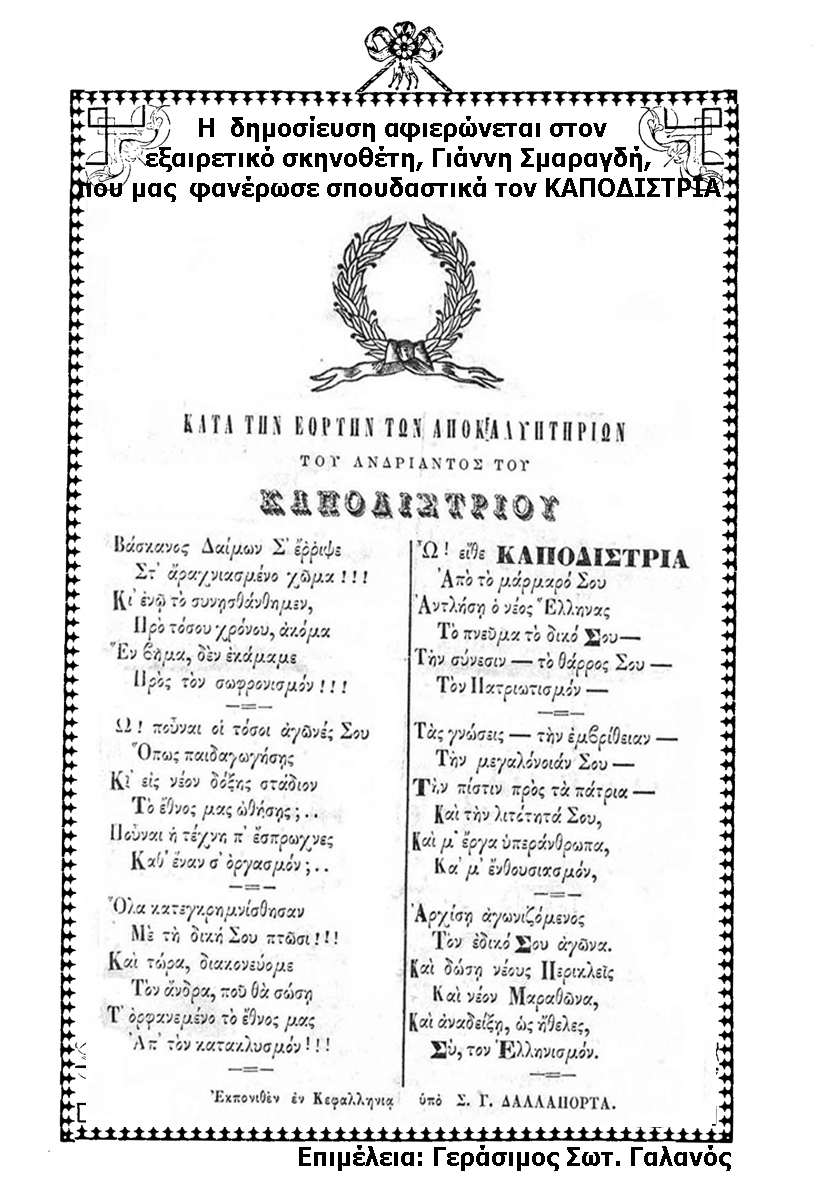 Η δημοσίευση αφιερώνεται στον
εξαιρετικό σκηνοθέτη, Γιάννη Σμαραγδή,
που μας φανέρωσε σπουδαστικά τον ΚΑΠΟΔΙΣΤΡΙΑ
ΚΑΤΑ ΤΗΝ ΕΟΡΤΗΝ ΤΩΝ ΑΠΟΚΑΛΥΠΤΗΡΙΩΝ
ΤΟΥ ΑΝΔΡΙΑΝΤΟΣ ΤΟΥ
ΚΑΠΟΔΙΣΤΡΙΟΥ
Βάσκανος Δαίμων Σ' ἔρριψε
Στ' ἀραχνιασμένο χῶμα!!!
Κι' ἐνῷ τὸ συνῃσθάνθημεν,
Πρὸ τόσου χρόνου, ἀκόμα
Ἓν βῆμα, δὲν ἐκάμαμε
Πρὸς τὸν σωφρονισμόν!!!
Ω! ποῦναι οἱ τόσοι ἀγῶνές Σου
Ὅπως παιδαγωγήσῃς
Κι' εἰς νέον δόξης στάδιον
Τὸ ἔθνος μας ὠθήσῃς;..
Ποῦναι ἡ τέχνη π' ἔσπρωχνες
Καθ' ἕναν σ' ὀργασμόν;..
Ὅλα κατεγκρημνίσθησαν
Μὲ τὴ δική Σου πτῶσι!!!
Καὶ τώρα, διακονεύομε
Τὸν ἄνδρα, ποῦ θὰ σώσῃ
Τ' ὀρφανεμένο τὸ ἔθνος μας
Ἀπ' τὸν κατακλυσμόν!!!
Ὢ! εἴθε ΚΑΠΟΔΙΣΤΡΙΑ
Ἀπὸ τὸ μάρμαρό Σου
Ἀντλήσῃ ὁ νέος Ἕλληνας
Τὸ πνεῦμα τὸ δικό Σου—
Τὴν σύνεσιν — τὸ θάρρος Σου —
Τὸν Πατριωτισμόν —
Τὰς γνώσεις — τὴν ἐμβρίθειαν —
Τὴν μεγαλόνοιάν Σου —
Τὴν πίστιν πρὸς τὰ πάτρια —
Καὶ τὴν λιτότητά Σου,
Καὶ μ' ἔργα ὑπεράνθρωπα,
Κα' μ' ἐνθουσιασμόν,
Ἀρχίσῃ ἀγωνιζόμενος
Τὸν ἐδικό Σου ἀγῶνα.
Καὶ δώσῃ νέους Περικλεῖς
Καὶ νέον Μαραθῶνα,
Καὶ ἀναδείξῃ, ὡς ἤθελες,
Σὺ, τὸν Ἑλληνισμόν.
Ἐκπονιθὲν ἐν Κεφαλληνίᾳ ὑπὸ Σ. Γ. ΔΑΛΛΑΠΟΡΤΑ.
Επιμέλεια: Γεράσιμος Σωτ. Γαλανός